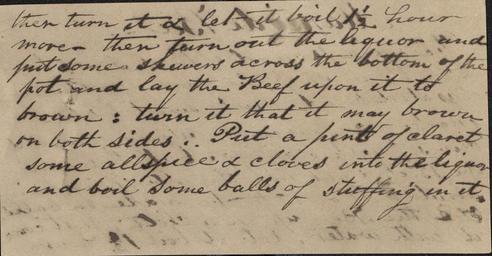 then turn it & let it boil 1½ hour
more then turn out the liquor and
put some skewers across the bottom of the
pot and lay the Beef upon it to
brown: turn it that it may brown
on both sides.. Put a pint of claret
some allspice & cloves into the liquor
and boil some balls of stuffing in it.